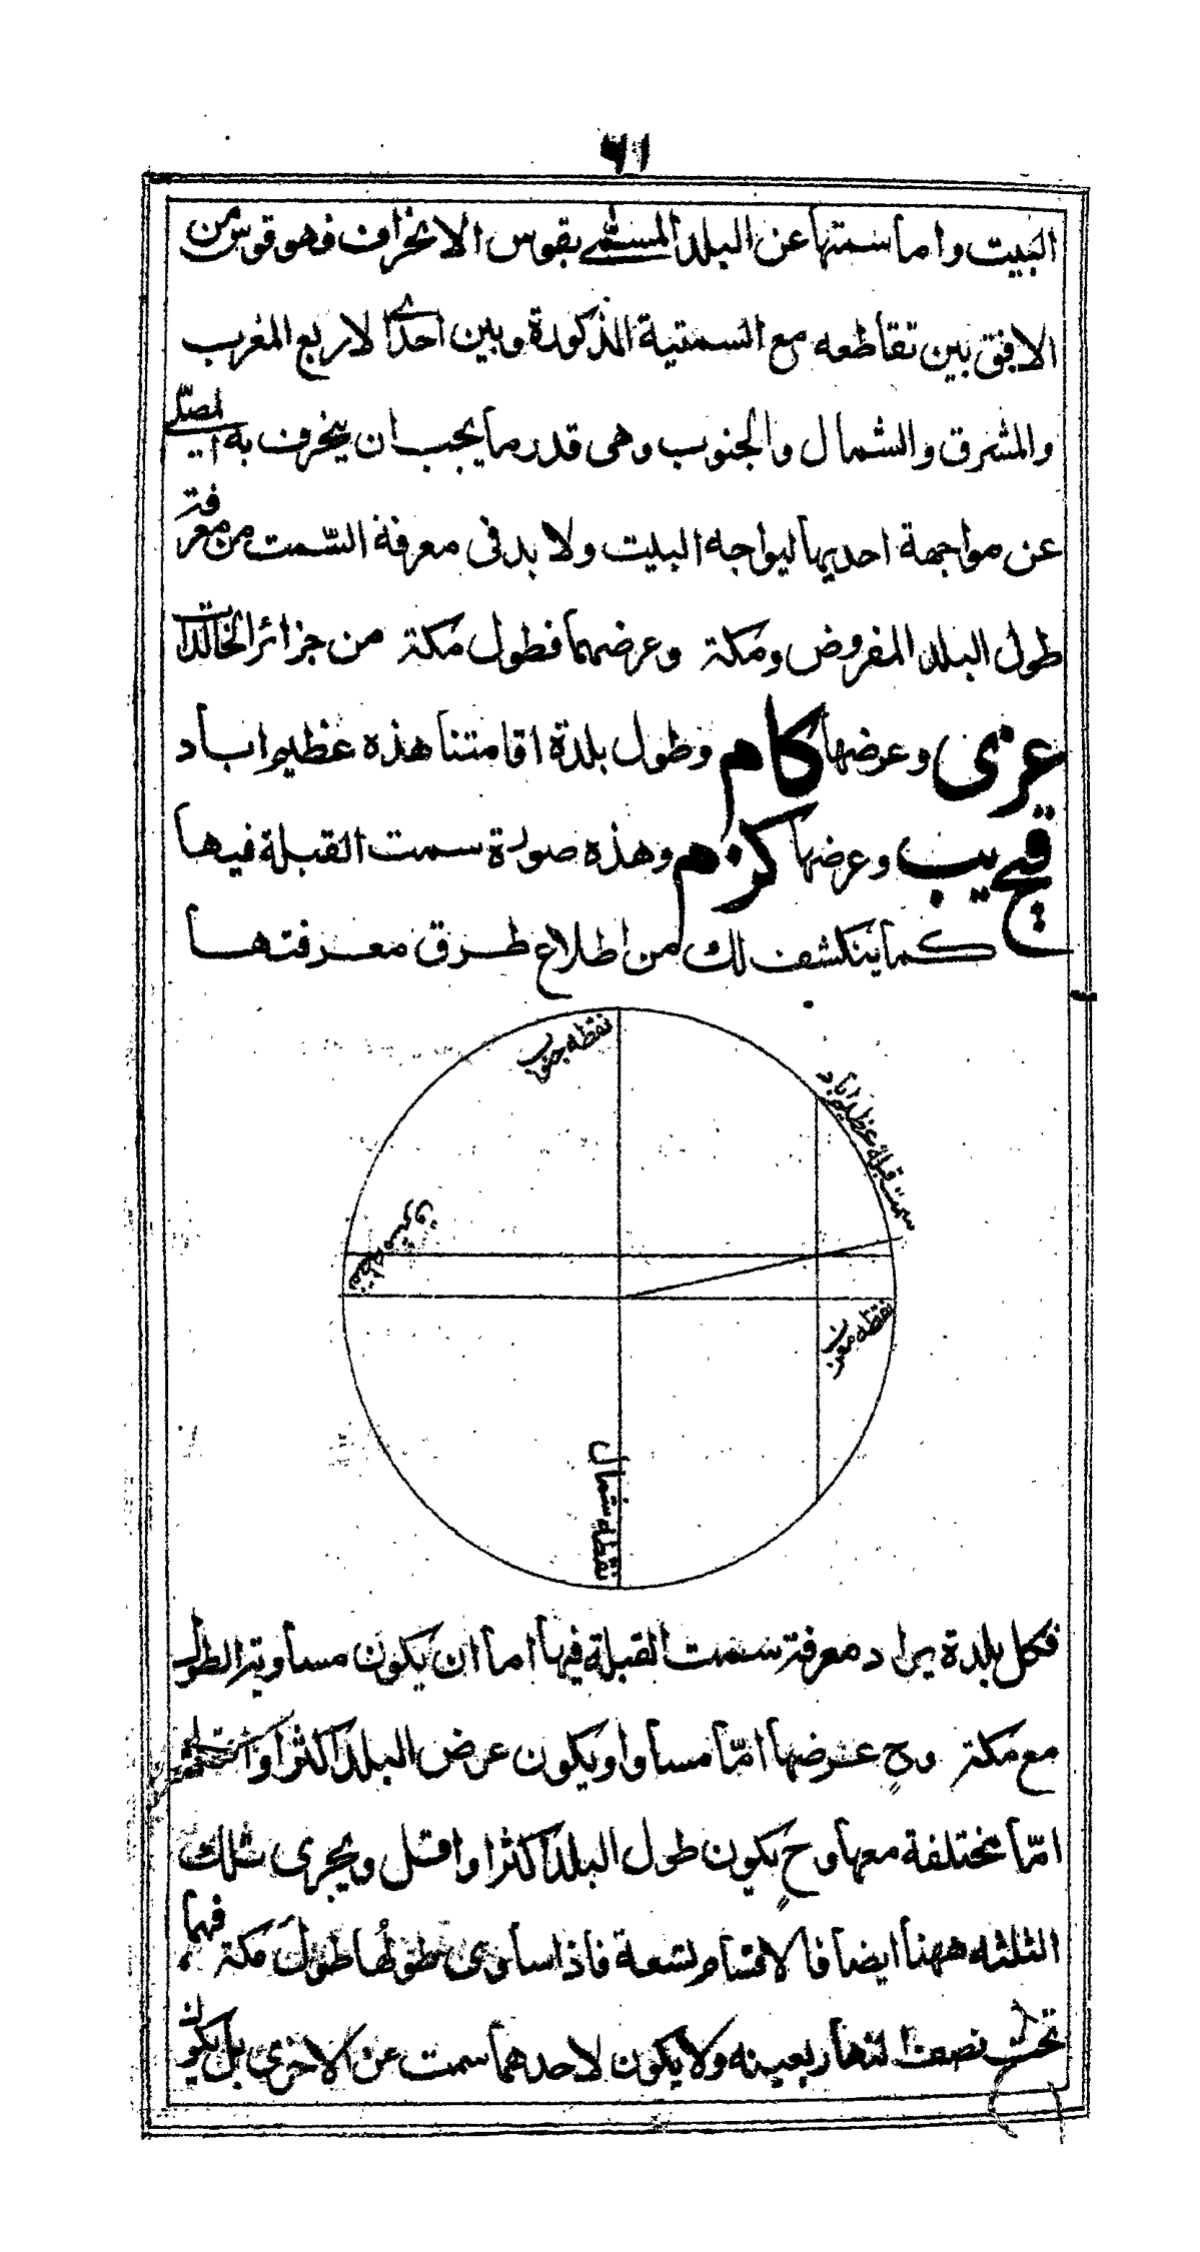 ٦١
البيت واما سمتها عن البلد المسمى بقوس الانحراف فهو قوس من
الافق بين تقاطعه مع السمتية المذكورة وبين احدى الاربع المغرب
والمشرق والشمال والجنوب وهى قدر ما يجب ان ينحرف به المصلى
عن مواجهة احديها ليواجه البيت ولا بد فى معرفة السّمت من معرفة
طول البلد المفروض ومكة وعرضهما فطول مكة من جزائر الخالدات
عزى وعرضها كام وطول بلدة اقامتنا هذه عظيم اباد
قيج يب وعرضها كزم وهذه صورة سمت القبلة فيها
كما ينكشف لك من اطلاع طرق معرفتها
نقطه جنوب
سمت قبلة عظيم اباد
نقطه مشرق
نقطه مغرب
نقطه شمال
فكل بلدة يراد معرفة سمت القبلة فيها اما ان يكون مساوية الطول
مع مكة وح عرضها امّا مساو او يكون عرض البلد اكثر او
امّا مختلفة معها وح يكون طول البلد اكثر او اقل ويجرى تلك
الثلثه ههنا ايضا فالاقسام تسعة فاذا ساوى طولها طول مكة فهما
تحت نصف النهار بعينه ولا يكون لاحدهما سمت عن الاخرى بل يكون